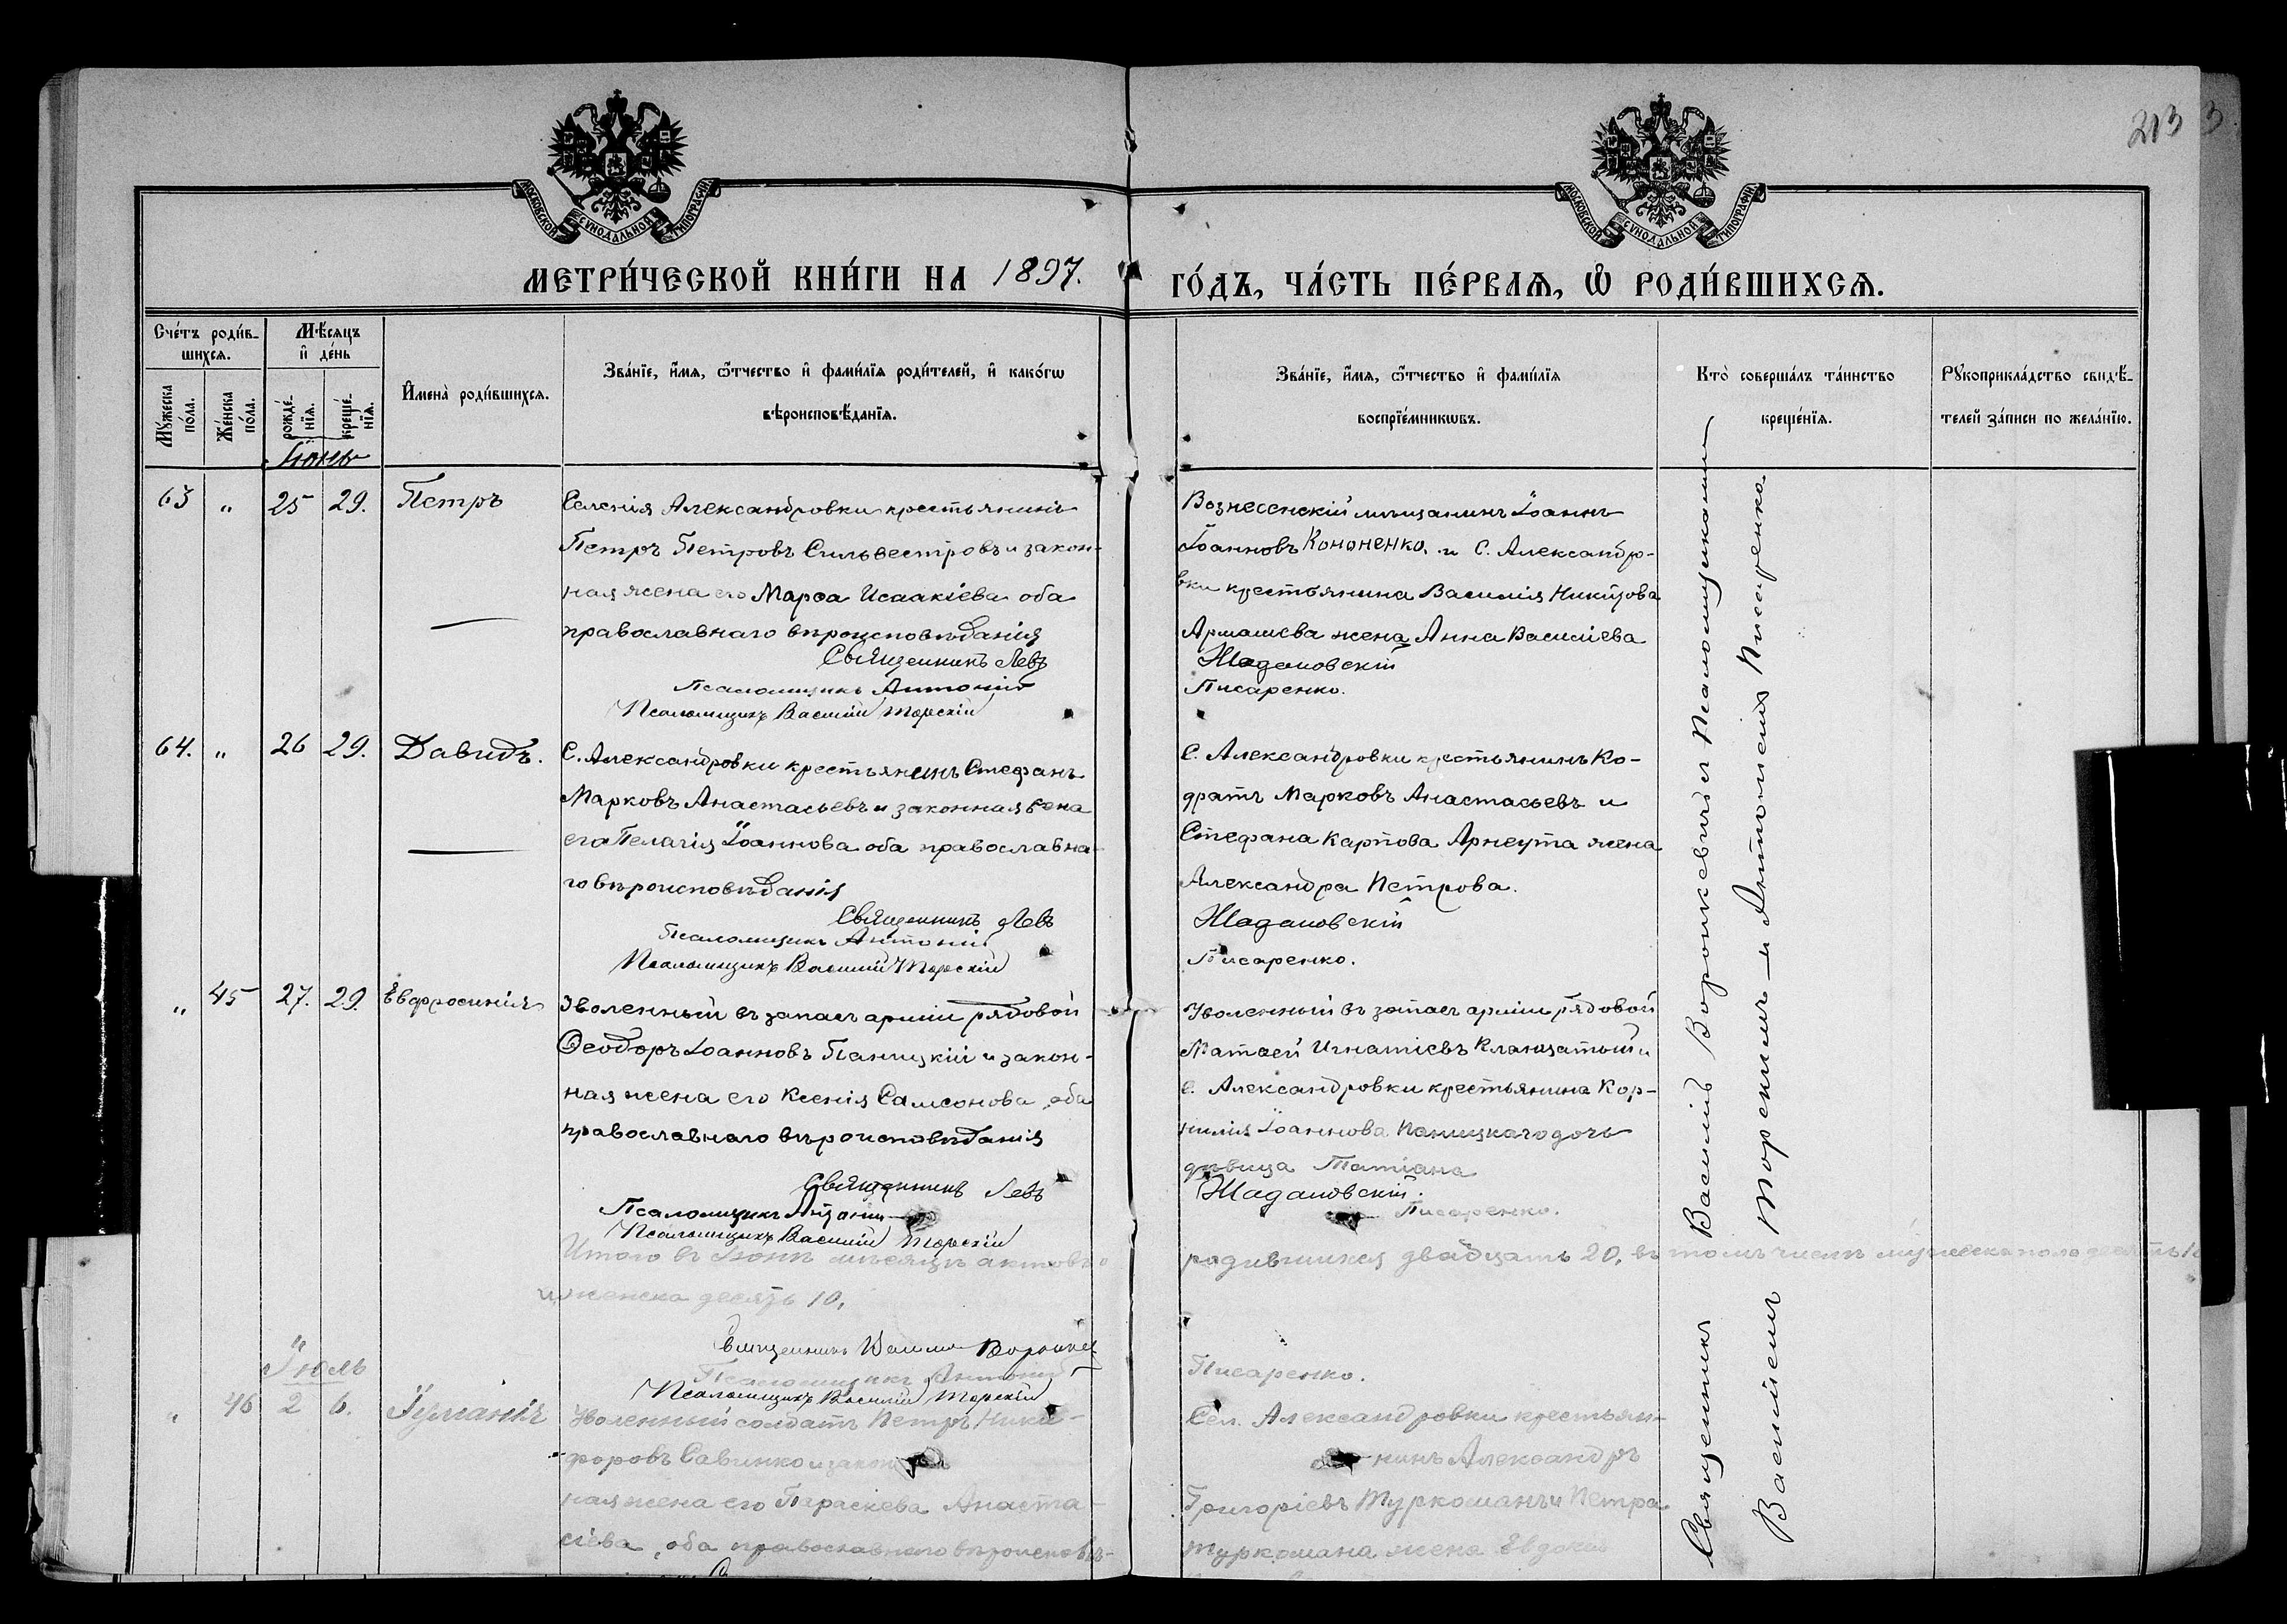 213 3
МОСКОВСКОЙ СУНОДАЛЬНОЙ ТИПОГРАФИ
МОСКОВСКОЙ СУНОДАЛЬНОЙ ТИПОГРАФИ
МЕТРИ́ЧЕСКОЙ КНИ́ГИ НА 1897. ГО́ДЪ, ЧА́СТЬ ПЕ́РВАѦ, Ѡ҆ РОДИ́ВШИХСѦ.
Сче́тъ роди́в-
шихсѧ.
Мѣ́сѧцъ
и҆ де́нь
Му́жеска
по́ла.
Же́нска
по́ла.
рожде́-
нїѧ.
креще́-
нїѧ.
И҆мена̀ роди́вшихсѧ.
Зва́нїе, и҆́мѧ, ѻ҆́тчество и҆ фами́лїѧ роди́телей, и҆ како́гѡ
вѣроисповѣ́данїѧ.
Зва́нїе, и҆́мѧ, ѻ҆́тчество и҆ фами́лїѧ
воспрїе́мникѡвъ.
Кто̀ соверша́лъ та́инство
креще́нїѧ.
Рꙋкоприкла́дство свидѣ́-
телей за́писи по жела́нїю.
Іюнь
63 " 25 29. Петръ
Селенія Александровки крестьянинъ
Петръ Петровъ Сильвестровъ и закон-
ная жена его Марѳа Исаакіева оба
православнаго вѣроисповѣданія
Священникъ Левъ
Псаломщикъ Антоній
Псаломщикъ Василій Торскій
Вознесенскій мѣщанинъ Іоаннъ
Іоанновъ Кононенко. и С. Александро-
вки крестьянина Василія Никитова
Армашева жена Анна Василіева
Жадановскій
Писаренко.
64. " 26 29. Давидъ.
С. Александровки крестьянинъ Стефанъ
Марковъ Анастасьевъ и законная жена
его Пелагія Іоаннова оба православна-
го вѣроисповѣданія
Священникъ Левъ
Псаломщикъ Антоній
Псаломщикъ Василій Торскій
С. Александровки крестьянинъ Ко-
дратъ Марковъ Анастасьевъ и
Стефана Карпова Арнеута жена
Александра Петрова.
Жадановскій
Писаренко.
" 45 27. 29. Евфросинія
Уволенный въ запасъ арміи рядовой
Ѳеодоръ Іоанновъ Паницкій и закон-
ная жена его Ксенія Самсонова оба
православнаго вѣроисповѣданія
Священникъ Левъ
Псаломщикъ Антоній
Псаломщикъ Василій Торскій
Уволенный въ запасъ арміи рядовой
Матѳей Игнатіевъ и
с. Александровки крестьянина Кор-
нилія Іоаннова Паницкаго дочь
дѣвица Татіана
Жадановскій.
Писаренко.
Итого въ Іюнѣ мѣсяцѣ актовъ о родившихся двадцать 20, въ томъ числѣ мужеска пола десять 10
и женска десять 10.
Священникъ Василій
Псаломщикъ Антоній
Псаломщикъ Василій Торскій
Писаренко.
Іюль
" 46 2 6. Іуліанія
Уволенный солдатъ Петръ Ники-
форовъ Савинко и закон
ная жена его Параскева Анаста-
сіева, оба православнаго вѣроисповѣ-
Сел. Александровки крестьян-
нинъ Александръ
Григоріевъ Туркоманъ и Петра
Туркомана жена Евдокія
Священникъ Василій и Псаломщиками
Василіемъ Торскимъ и Антоніемъ Писаренко